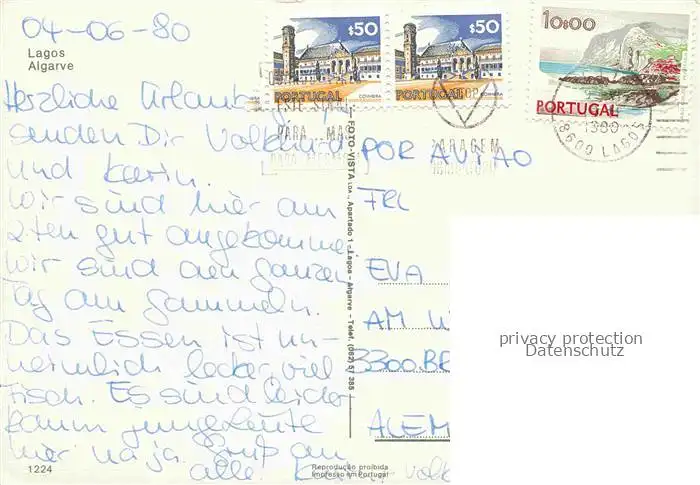 04-06-80
Lagos
Algarve
Herzliche Urlaubsgrüße
senden Dir Volkhard
und Karin.
Wir sind hier am
2ten gut angekommen
Wir sind den ganzen
Tag am Gammeln.
Das Essen ist un-
heimlich lecker, viel
Fisch. Es sind leider
kaum junge Leute
hier na ja. Gruß an
alle Karin Volk
1224
FOTO-VISTA LDA., Apartado 1 - Lagos - Algarve - Telef. (082) 57 385
Reprodução proibida
Impresso em Portugal
$50
PORTUGAL
COIMBRA
$50
PORTUGAL
COIMBRA
10$00
PORTUGAL
1980
8600 LAGOS
PARA
POR AVIÃO
FRL
EVA
AM W
3300 BR
ALEM
privacy protection
Datenschutz